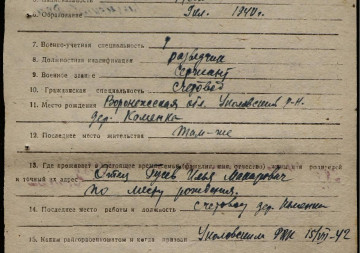 6. Образование 7 кл. 1940 г.
7. Военно-учетная специальность 9
8. Должностная квалификация разведчик
9. Военное звание Сержант
10. Гражданская специальность Счетовод
11. Место рождения Воронежская обл. р-н.
дер. Каменка
12. Последнее место жительства Там-же
13. Где проживает в настоящее время
и точный их адрес Отец Гусев Илья Макарович
по месту рождения.
14. Последнее место работы и должность счетовод дер. Каменка
15. Каким райгорвоенкоматом и когда призван РВК 15/VII-42